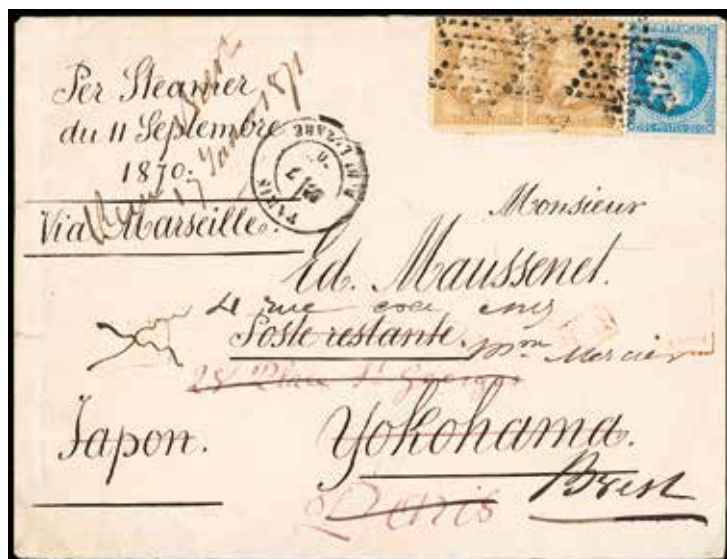 Per Steamer
du 11 Septembre
1870.
Via Marseille.
17 Janvier 1871
PARIS
Monsieur
Ed. Maussenet.
4 rue
Poste restante.
Mon Mercier
28 Place St Georges
Japon.
Yokohama.
Paris
Brest